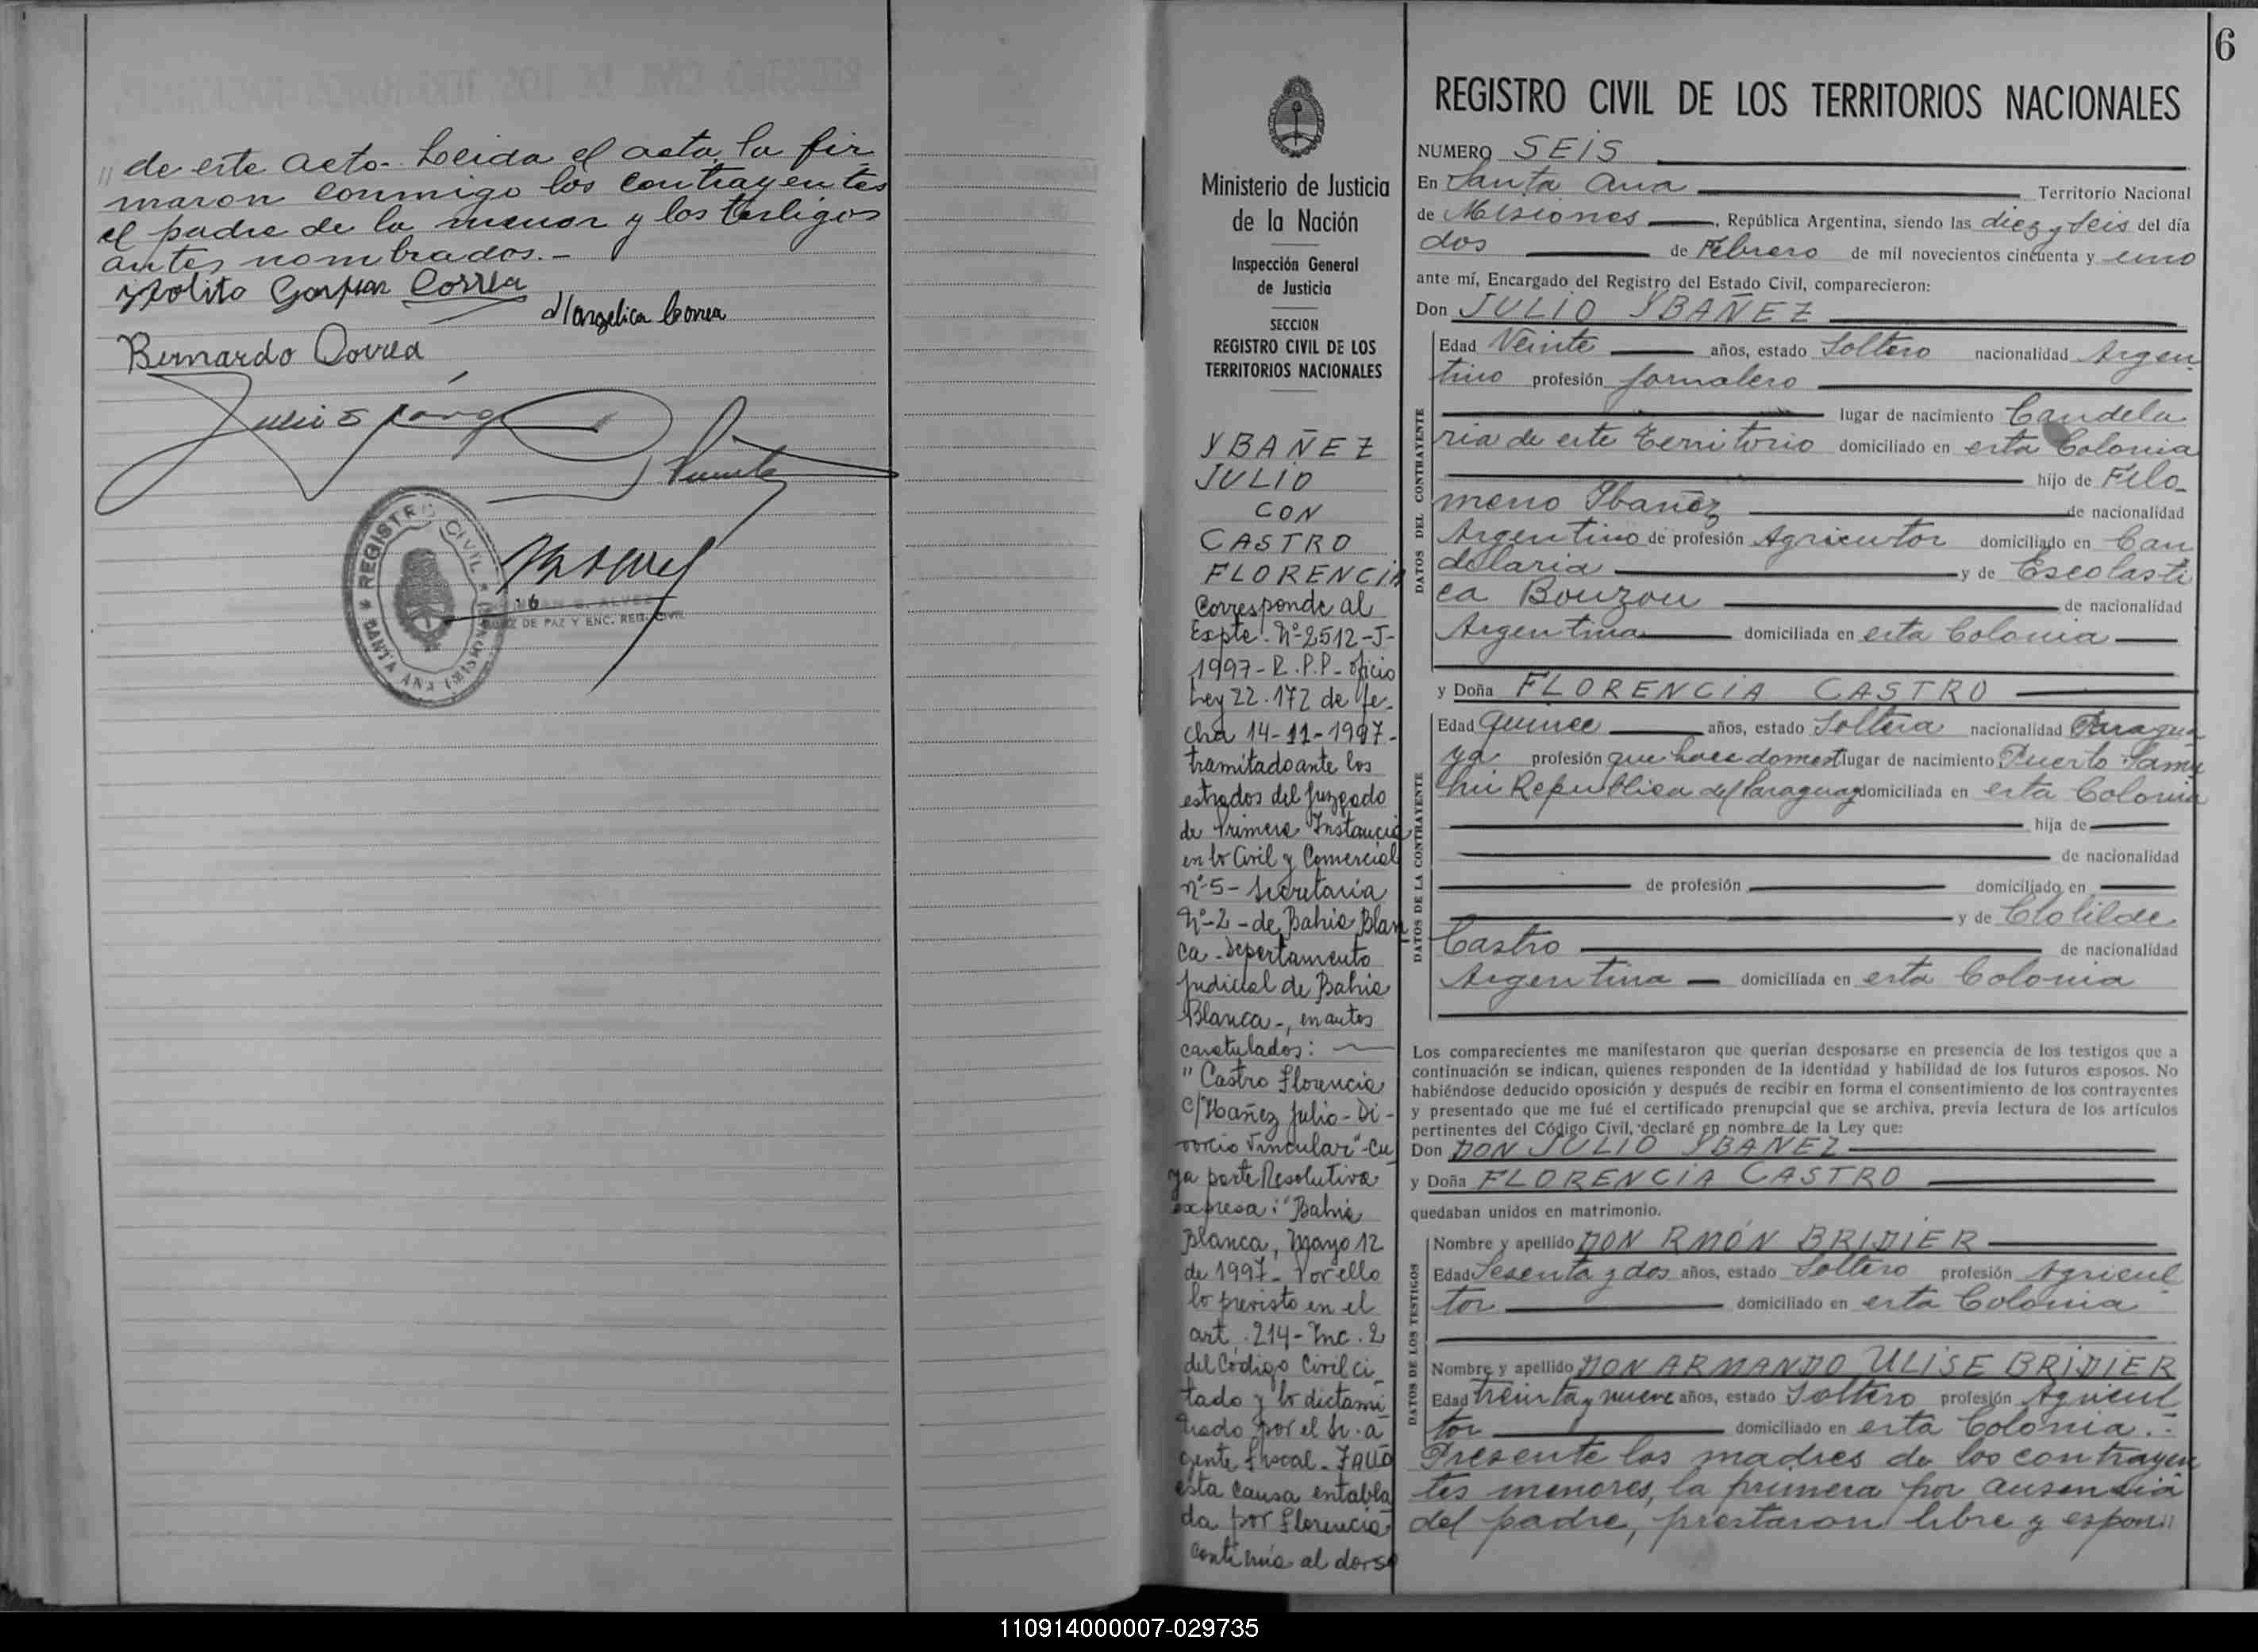 " de este acto. Leida el acta la fir_
maron conmigo los contrayentes
el padre de la menor y los testigos
antes nombrados.-
Ypolito Gaspar Correa
Margelica Correa
Bernardo Correa
REGISTRO CIVIL
SANTA ANA (MISIONES)
S. ALVEZ
JUEZ DE PAZ Y ENC. REG. CIVIL
6
Ministerio de Justicia
de la Nación
Inspección General
de Justicia
SECCION
REGISTRO CIVIL DE LOS
TERRITORIOS NACIONALES
YBAÑEZ
JULIO
CON
CASTRO
FLORENCIA
Corresponde al
Expte. Nº 2512-J-
1997- R.P.P- oficio
Ley 22.172 de fe-
cha 14-11-1997-
tramitado ante los
estrados del Juzgado
de Primera Instancia
en lo Civil y Comercial
nº 5- Secretaria
Nº-2-de Bahia Blan
ca-Departamento
Judicial de Bahia
Blanca-, en autos
caratulados:
"Castro Florencia
c/Ybañez Julio-Di-
vorcio Vincular"-Cu
ya parte Resolutiva
expresa: "Bahia
Blanca, Mayo 12
de 1997- Por ello
lo previsto en el
art. 214-Inc. 2
del Código Civil ci_
tado y lo dictami
nado por el Sr. a
gente fiscal-FALLO
esta causa entabla
da por Florencia
continúa al dorso
REGISTRO CIVIL DE LOS TERRITORIOS NACIONALES
NUMERO SEIS
En Santa Ana Territorio Nacional
de Misiones, República Argentina, siendo las diez y seis del día
dos de Febrero de mil novecientos cincuenta y uno
ante mí, Encargado del Registro del Estado Civil, comparecieron:
Don JULIO YBAÑEZ
DATOS DEL CONTRAYENTE
Edad Veinte años, estado Soltero nacionalidad Argen
tino profesión jornalero
lugar de nacimiento Candela
ria de este Territorio domiciliado en esta Colonia
hijo de Filo_
meno Ibañez de nacionalidad
Argentino de profesión Agricutor domiciliado en Can
delaria y de Escolasti
ca Bouzou de nacionalidad
Argentina domiciliada en esta Colonia
y Doña FLORENCIA CASTRO
DATOS DE LA CONTRAYENTE
Edad quince años, estado Soltera nacionalidad Paragua
ya profesión que hace domest lugar de nacimiento Puerto
República del Paraguay domiciliada en esta Colonia
hija de
de nacionalidad
de profesión domiciliado en
y de Clotilde
Castro de nacionalidad
Argentina domiciliada en esta Colonia
Los comparecientes me manifestaron que querían desposarse en presencia de los testigos que a
continuación se indican, quienes responden de la identidad y habilidad de los futuros esposos. No
habiéndose deducido oposición y después de recibir en forma el consentimiento de los contrayentes
y presentado que me fué el certificado prenupcial que se archiva, previa lectura de los artículos
pertinentes del Código Civil, declaré en nombre de la Ley que:
Don DON JULIO YBAÑEZ
y Doña FLORENCIA CASTRO
quedaban unidos en matrimonio.
DATOS DE LOS TESTIGOS
Nombre y apellido DON RMÓN BRIDIER
Edad Sesenta y dos años, estado Soltero profesión Agricul
tor domiciliado en esta Colonia
Nombre y apellido DON ARMANDO ULISE BRIDIER
Edad treinta y nueve años, estado Soltero profesión Agricul
tor domiciliado en esta Colonia.-
Presente las madres de los contrayen
tes menores, la primera por ausencia
del padre, prestaron libre y espon"
110914000007-029735